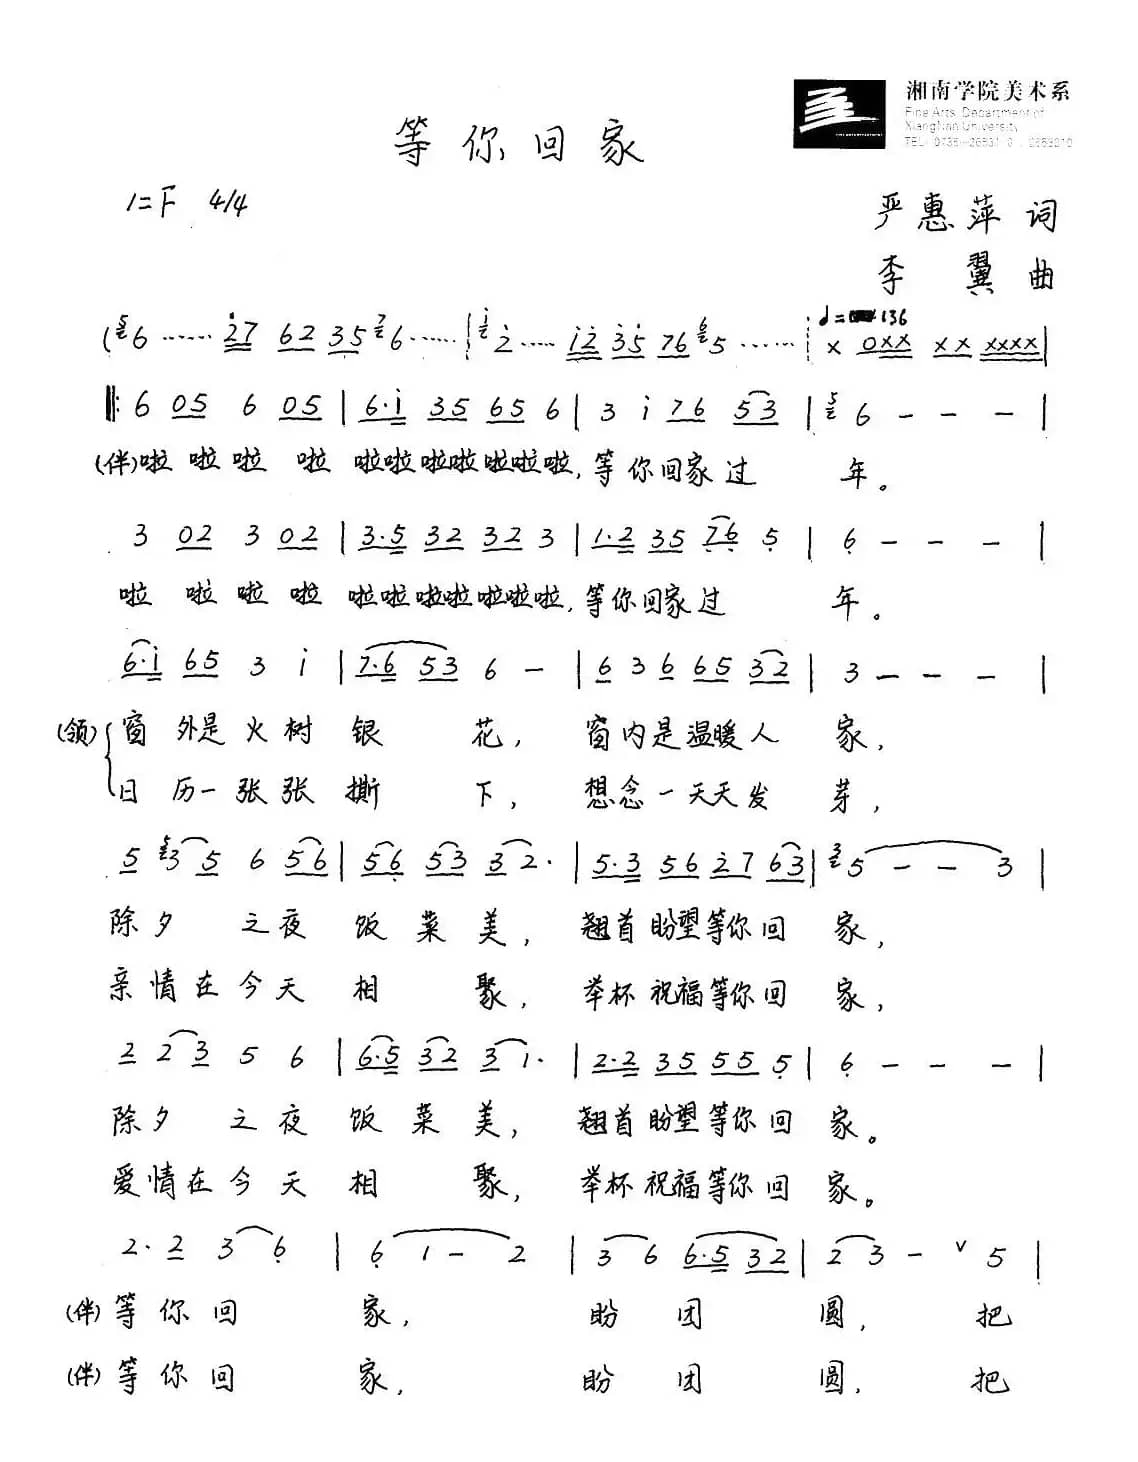 湘南学院美术系
Fine Arts Department of
XiangNan University
等你回家
1=F 4/4
严惠萍 词
李 翼 曲
♩= 136
(5 6 …… 2 7 6 2 3 5 7 6 …… 1 2 …… 1 2 3 5 7 6 6 5 …… x 0xx xx xxxx |
‖: 6 05 6 05 | 6·1 35 65 6 | 3 1 76 53 | 5 6 – – – |
(伴)啦 啦啦 啦 啦啦啦啦啦啦啦,等你回家过 年。
3 02 3 02 | 3·5 32 32 3 | 1·2 35 76 5 | 6 – – – |
啦 啦 啦 啦 啦啦啦啦啦啦啦,等你回家过 年。
6·1 65 3 1 | 7·6 53 6 – | 6 3 6 65 32 | 3 – – – |
(领) 窗 外是火树 银 花, 窗内是温暖人 家,
日 历一张张 撕 下, 想念一天天发 芽,
5 5 3 5 6 56 | 56 53 3 2· | 5·3 56 27 63 | 3 5 – – 3 |
除夕 之夜 饭 菜 美, 翘首盼望等你回 家,
亲情在今天 相 聚, 举杯祝福等你回 家,
2 2 3 5 6 | 6·5 32 3 1· | 2·2 35 55 5 | 6 – – – |
除夕 之夜 饭 菜 美, 翘首盼望等你回 家。
爱情在今天 相 聚, 举杯祝福等你回 家。
2· 2 3 6 | 6 1 – 2 | 3 6 6·5 32 | 2 3 – v 5 |
(伴) 等你回 家, 盼 团 圆, 把
(伴) 等你回 家, 盼 团 圆, 把